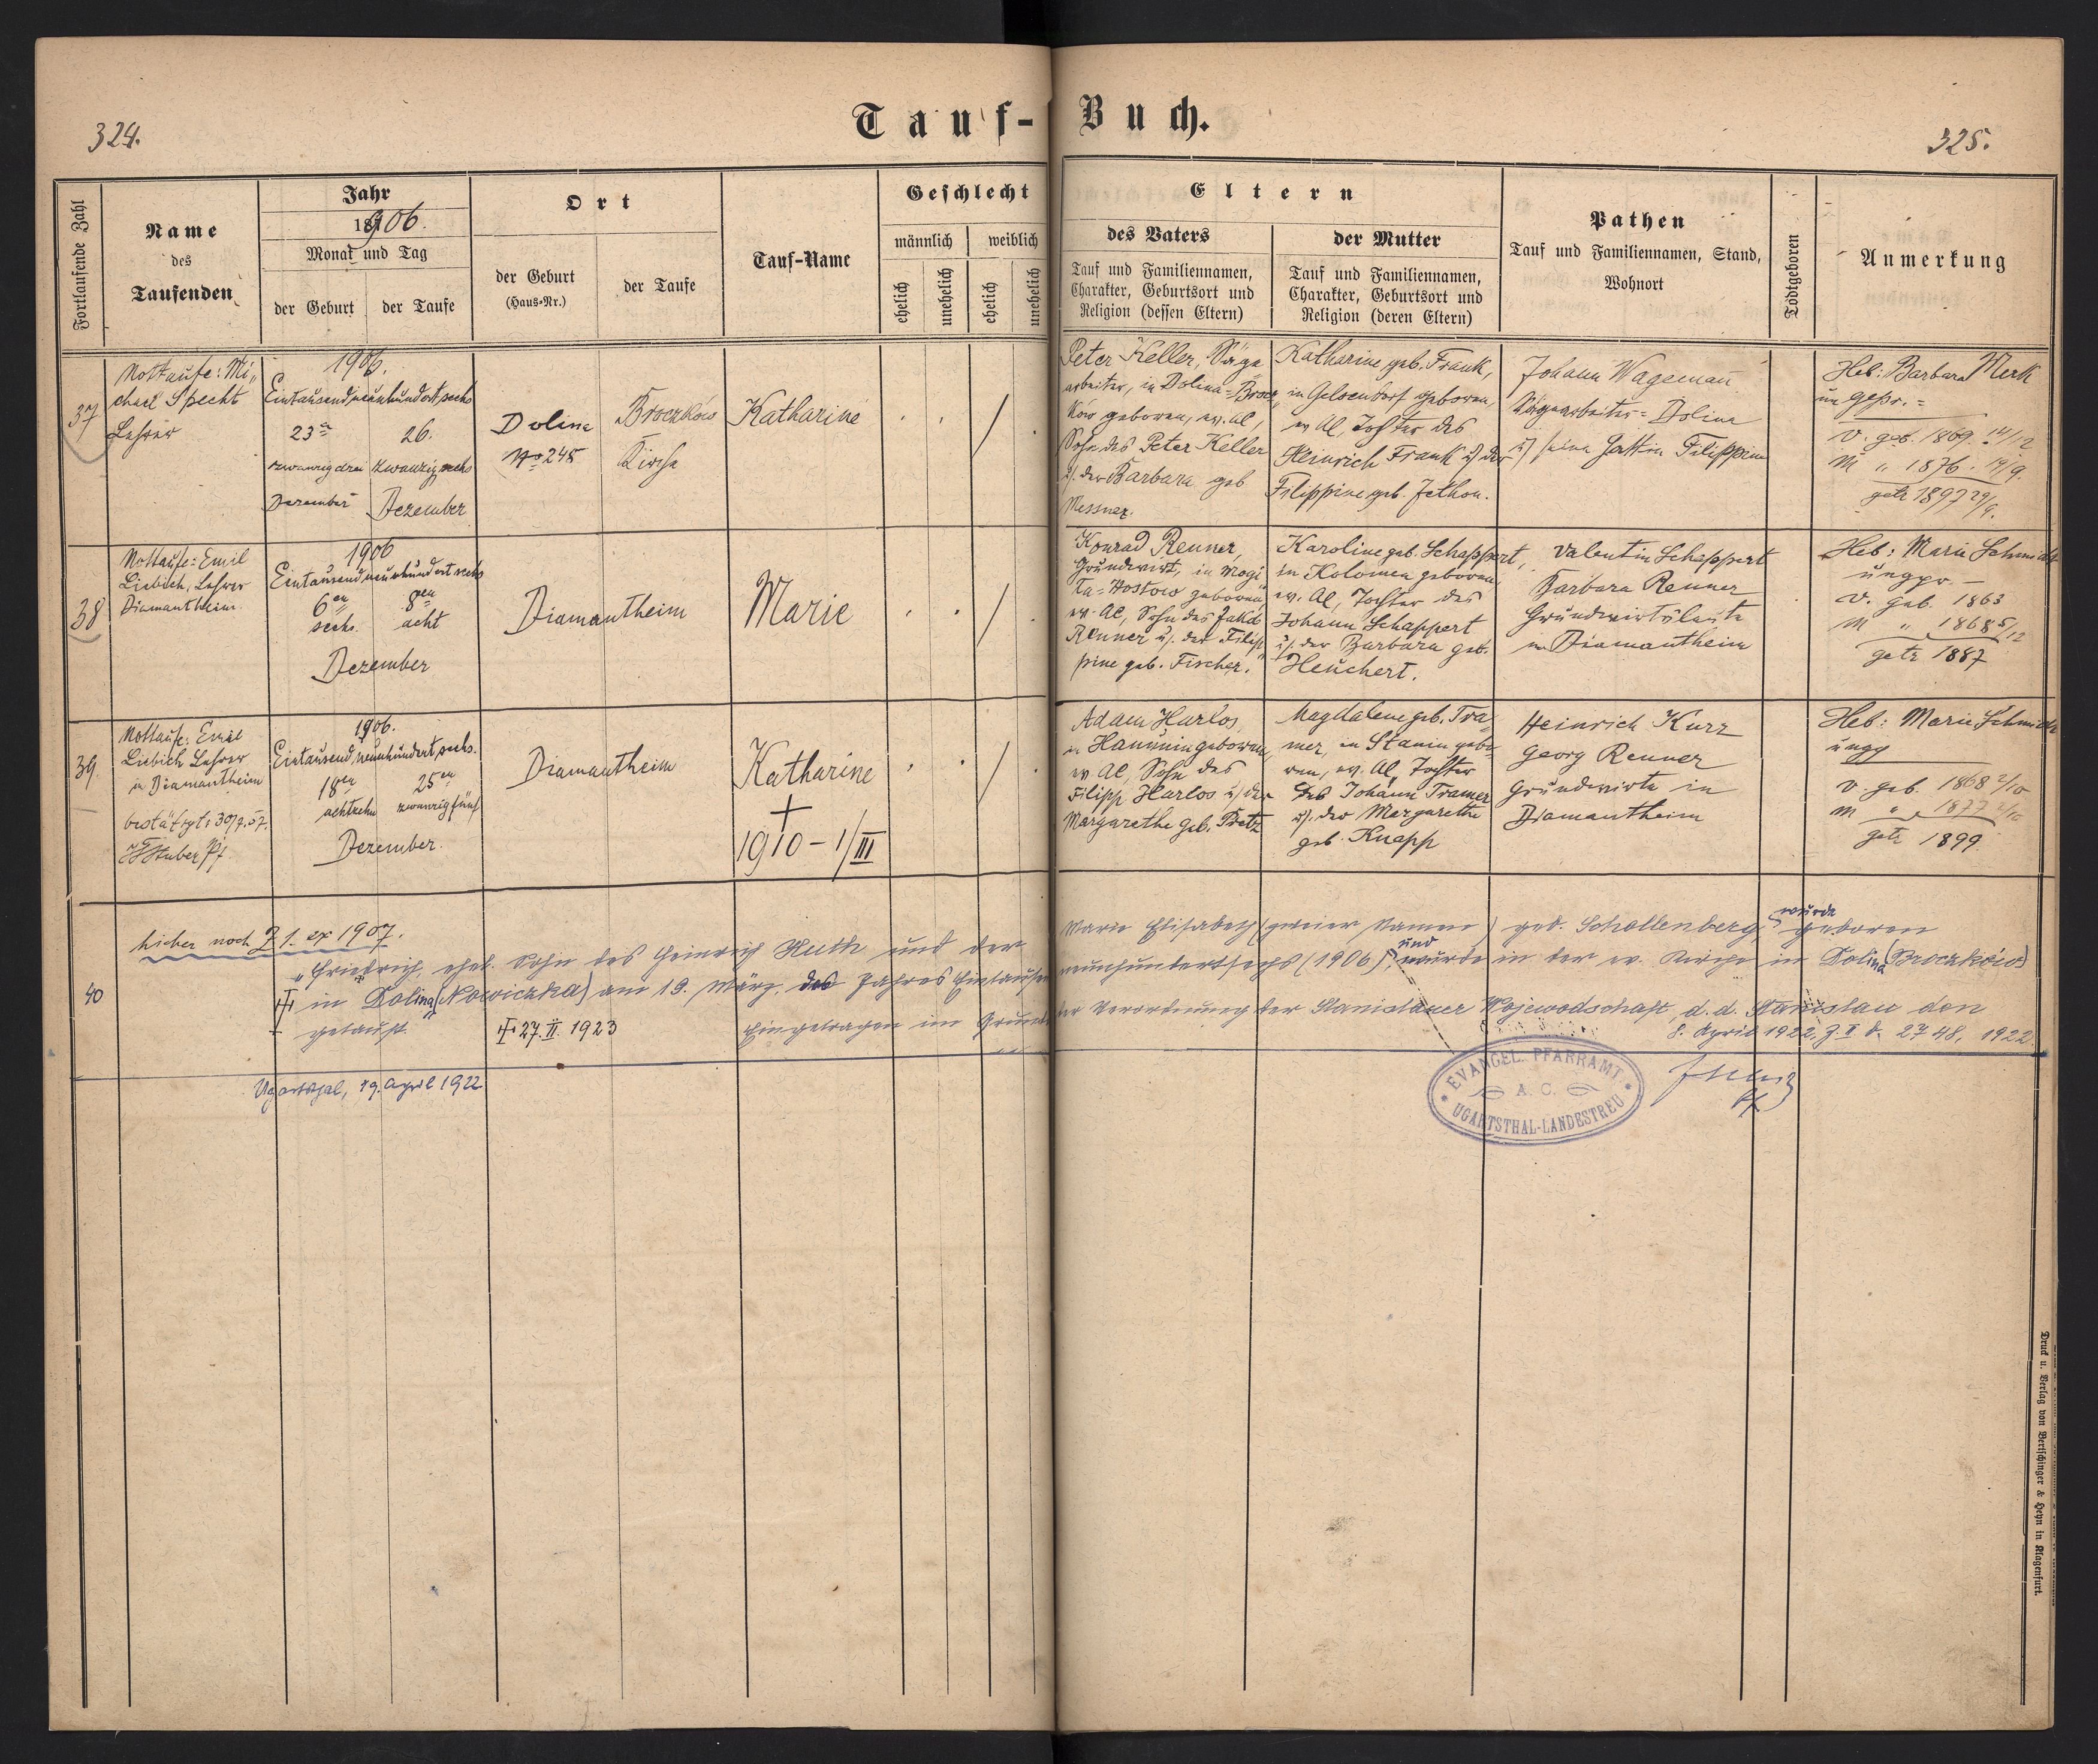 324.
Tauf-Buch.
325.
Fortlaufende Zahl
Name
des
Taufenden
Jahr
18
1906.
Monat und Tag
der Geburt
der Taufe
Ort
der Geburt
(Haus-Nr.)
der Taufe
Tauf-Name
Geschlecht
männlich
weiblich
ehelich
unehelich
ehelich
unehelich
Eltern
des Vaters
Tauf und Familiennamen,
Charakter, Geburtsort und
Religion (dessen Eltern)
der Mutter
Tauf und Familiennamen,
Charakter, Geburtsort und
Religion (deren Eltern)
Pathen
Tauf und Familiennamen, Stand,
Wohnort
Todtgeboren
Anmerkung
37
Nottaufe: Mi„
chael Specht
Lehrer
1906.
Eintausendneunhundertsechs
23
26.
zwanzigdrei
zwanzigsechs
Dezember
Dezember
Dolina
No 248
Broczków
Kirche
Katharine
Peter Keller, Säge
arbeiter, in Dolina-Brocz
ków geboren, ev. Al,
Sohn des Peter Keller
u. der Barbara geb
Messner.
Katharine geb. Frank,
in Gelsendorf geboren,
ev Al, Tochter des
Heinrich Frank u der
Filippine geb. Jethon.
Johann Wageman
Sägearbeiter = Dolina
u seine Gattin Filippine
Heb: Barbara Merk
un gepr. =
V. geb. 1869. 14/12
M " 1876. 14/9.
getr 1897 29/8.
38
Nottaufe: Emil
Liebich, Lehrer
Diamantheim.
1906
Eintausendneunhundertsechs
6en
8en
sechs.
acht
Dezember
Diamantheim
Marie
Konrad Renner,
Grundwirt, in Mogi
ła-Hostow geboren
ev. Al, Sohn des Jakob
Renner u. der Filip„
pine geb. Fischer.
Karoline geb. Schappert,
in Kolomea geboren
ev. Al, Tochter des
Johann Schappert
u. der Barbara geb.
Heuchert.
Valentin Schappert
Barbara Renner
Grundwirtsleute
in Diamantheim
Heb: Marie Schmidt
ungpr. —
V. geb. 1863
M " 1868 5/12
getr 1887
39.
Nottaufe: Emil
Liebich Lehrer
in Diamantheim
bestätigt: 30/7.07.
Stuber Pf.
1906.
Eintausend neunhundertsechs.
18en
25en
achtzehn
zwanzigfünf
Dezember.
Diamantheim
Katharine
+
1910 - 1/III
Adam Harlos
in Hanunin geboren,
ev Al, Sohn des
Filipp Harlos u der
Margarethe geb. Pretz
Magdalene geb. Tra
mer, in Stanin gebo„
ren, ev. Al, Tochter
des Johann Tramer
u. der Margarethe
geb. Knapp
Heinrich Kurz
Georg Renner
Grundwirte in
Diamantheim
Heb: Marie Schmidt
ungp
V. geb. 1868 2/10
M " 1877
getr 1899.
40
hieher noch Z 1. ex 1907.
"Friedrich, ehel. Sohn des Heinrich Huth und der Marie Elisabeth (zweier Namen) geb. Schollenberg, wurde geboren
in Dolina (Nowiczka) am 19. März des Jahres Eintausendneunhundertsechs (1906) und wurde in der ev. Kirche in Dolina (Broczków)
getauft."
27. II. 1923
Eingetragen im Grunde der Verordnung der Stanislauer Wojewodschaft, d. d. Stanislau den
8. April 1922, Z. 2748, 1922.
Ugartsthal, 19. April 1922
EVANGEL. PFARRAMT
A. C.
UGARTSTHAL-LANDESTREU
Druck u. Verlag von Bertschinger & Heyn in Klagenfurt.